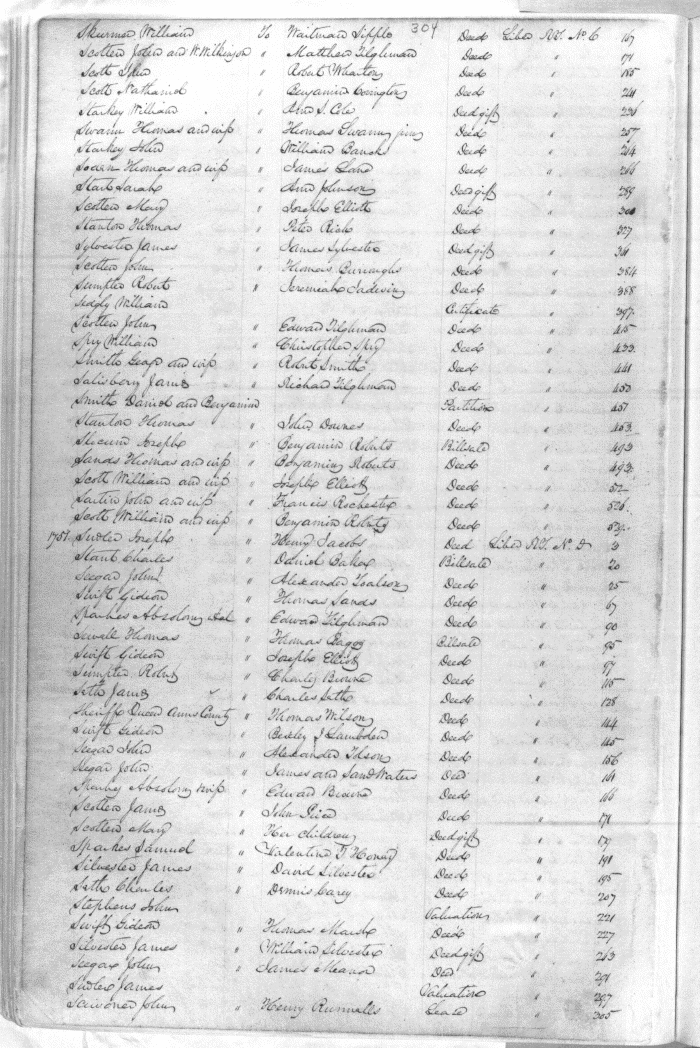 304
Skurmer William To Waitman Sipple Deed Liber RT. No C 167
Scotten John and W. Wilkinson " Matthew Tilghman Deed " 171
Scott John " Robert Wharton Deed " 185
Scott Nathaniel " Benjamin Covington Deed " 211
Starkey William " Ann S. Cole Deed gift " 236
Swann Thomas and wife " Thomas Swann junr Deed " 257
Starkey John " William Banks Deed " 264
Soden Thomas and wife " James Lane Deed " 266
Start Sarah " Ann Johnson Deed gift " 289
Scotten Mary " Joseph Elliott Deed " 300
Stanton Thomas " Peter Rich Deed " 327
Sylvester James " James Sylvester Deed gift " 361
Scotten John " Thomas Burroughs Deed " 384
Sumpter Robert " Jeremiah Jadwin Deed " 388
Sedgly William Certificate " 397
Scotten John " Edward Tilghman Deed " 415
Spry William " Christopher Spry Deed " 433
Smith George and wife " Robert Smith Deed " 441
Salisbury James " Richard Tilghman Deed " 453
Smith Daniel and Benjamin Partition " 457
Stanton Thomas " John Downes Deed " 463
Slocum Joseph " Benjamin Roberts Billsale " 493
Sands Thomas and wife " Benjamin Roberts Deed " 493
Scott William and wife " Joseph Elliott Deed " 52
Sartin John and wife " Francis Rochester Deed " 526
Scott William and wife " Benjamin Roberts Deed " 529
1751. Sudler Joseph " Henry Jacobs Deed Liber RT. No. D 3
Start Charles " Daniel Baker Billsale " 20
Seegar John " Alexander Toalson Deed " 25
Swift Gideon " Thomas Sands Deed " 67
Sparkes Absolom et al " Edward Tilghman Deed " 90
Sewell Thomas " Thomas Baggs Billsale " 95
Swift Gideon " Joseph Elliott Deed " 97
Sumpter Robert " Charles Browne Deed " 115
Seth James " Charles Seth Deed " 128
Sheriff Queen Anns County " Thomas Wilson Deed " 144
Swift Gideon " Bexley J Lambden Deed " 145
Seegar John " Alexander Tolson Deed " 156
Segar John " James and Sand Waters Deed " 161
Sparkes Absolom & wife " Edward Browne Deed " 166
Scotten James " John Price Deed " 178
Scotten Mary " Her children Deed gift " 179
Sparkes Samuel " Valentine T Honey Deed " 191
Silvester James " David Silvester Deed " 195
Seth Charles " Dennis Carey Deed " 207
Stephens John Valuation " 221
Swift Gideon " Thomas Marsh Deed " 227
Silvester James " William Silvester Deed gift " 263
Seegar John " James Meanor Deed " 291
Sudler James Valuation " 297
Scrisoner John " Henry Runnalls Lease " 305